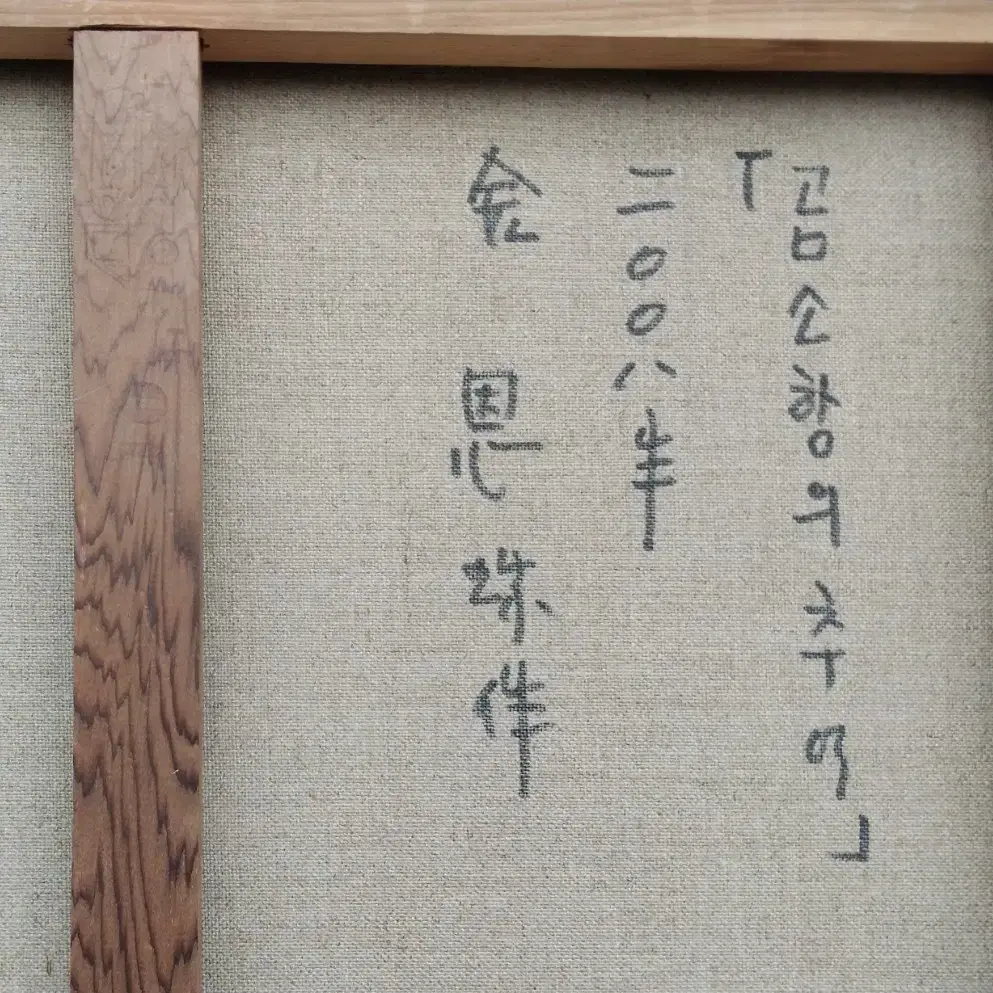 「곰소항의 추억」
二00八年
金 恩 珠 作